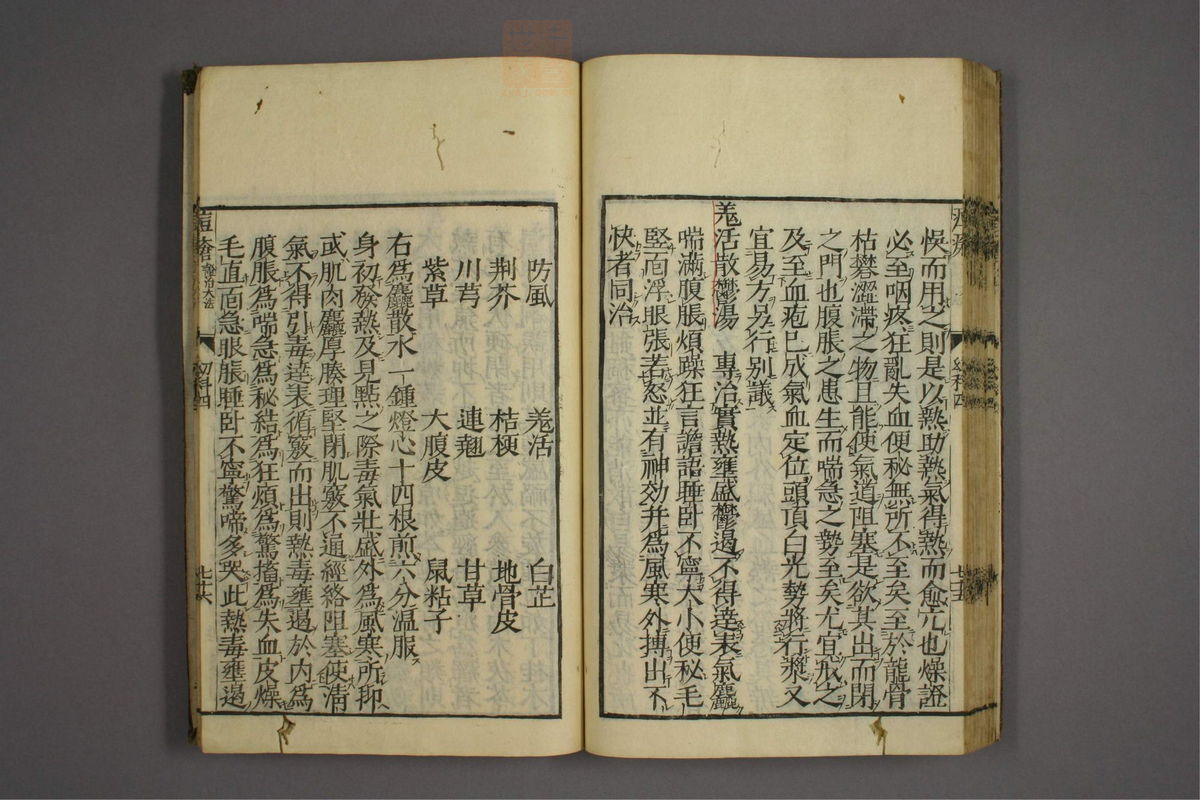 悞而用之則是以熱助熱氣得熱而愈亢也燥證
必至咽疼狂亂失血便秘無所不至矣至於龍骨
枯礬澀滯之物且能使氣道阻塞是欲其出而閉
之門也腹脹之患生而喘急之勢至矣尤宜戒之
及至血疱已成氣血定位頭頂白光勢將行漿又
宜易方另行別議
羗活散鬱湯 專治實熱壅盛鬱遏不得達表氣麤
喘滿腹脹煩躁狂言譫語睡卧不寧大小便秘毛
竪靣浮眼張若怒並有神効并為風寒外搏出不
快者同治
幼科四
七十五
防風 羗活 白芷
荆芥 桔梗 地骨皮
川芎 連翹 甘草
紫草 大腹皮 鼠粘子
右為麤散水一鍾燈心十四根煎六分溫服
身初發熱及見點之際毒氣壯盛外為風寒所抑
或肌肉麤厚腠理堅閉肌竅不通經絡阻塞使清
氣不得引毒達表循竅而出則熱毒壅遏於內為
腹脹為喘急為秘結為狂煩為驚搐為失血皮燥
毛直靣急眼脹睡卧不寧驚啼多哭此熱毒壅遏
痘瘡
幼科四
七十六